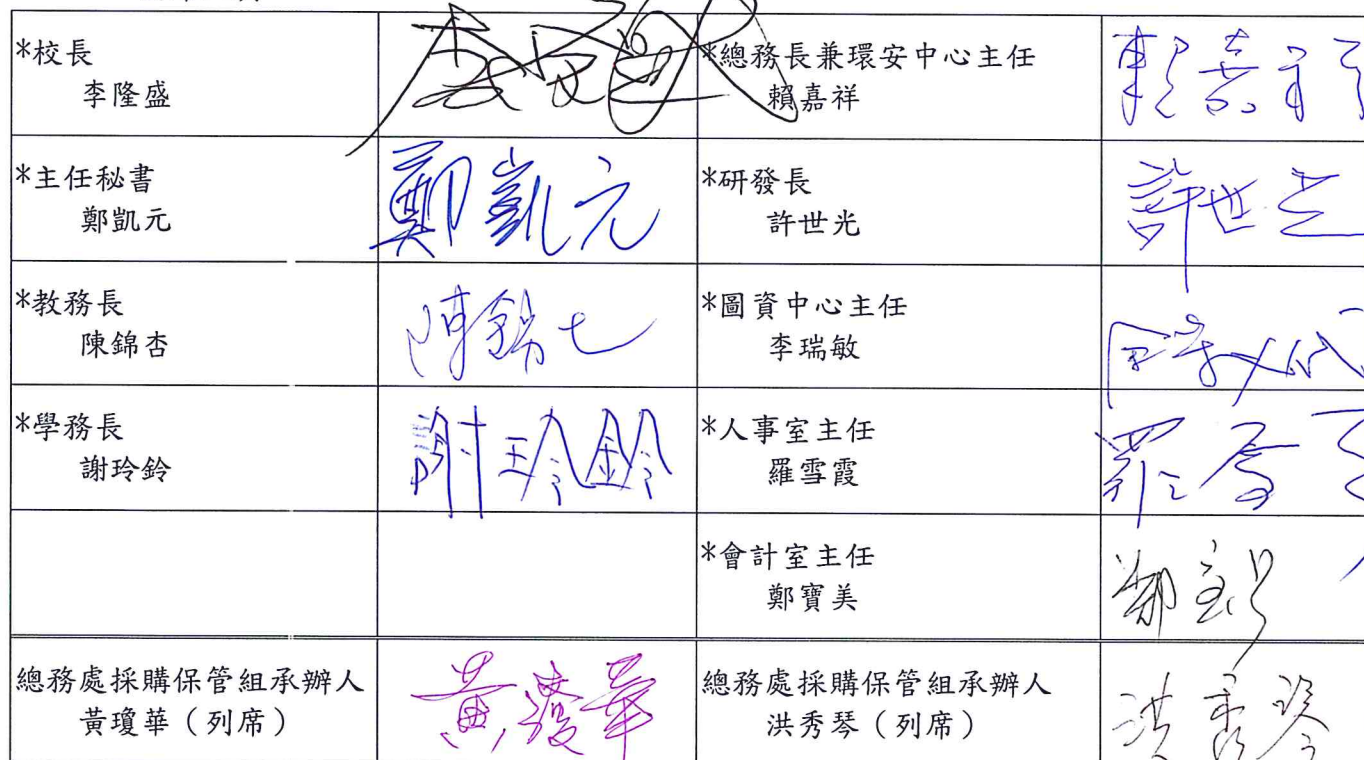 *校長
李隆盛
*總務長兼環安中心主任
賴嘉祥
*主任秘書
鄭凱元
鄭凱元
*研發長
許世光
許世光
*教務長
陳錦杏
陳錦
*圖資中心主任
李瑞敏
*學務長
謝玲鈴
謝玲鈴
*人事室主任
羅雪霞
*會計室主任
鄭寶美
總務處採購保管組承辦人
黃瓊華（列席）
黃瓊華
總務處採購保管組承辦人
洪秀琴（列席）
洪秀琴